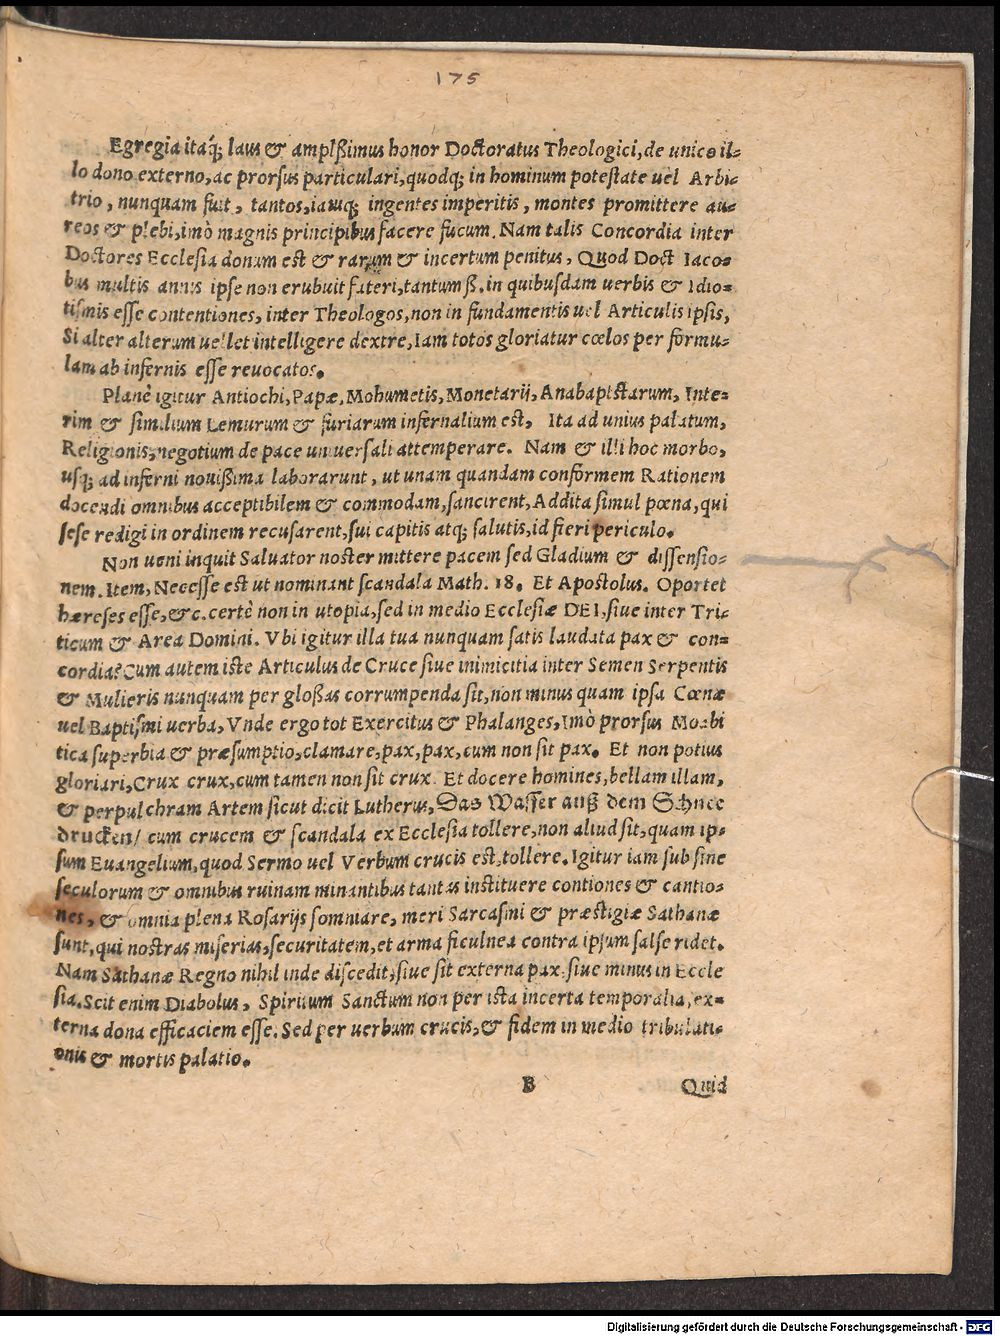 175
Egregia itaq́; laus & amplßimus honor Doctoratus Theologici, de unico il=
lo dono externo, ac prorsus particulari, quodq; in hominum potestate uel Arbi=
trio, nunquam fuit, tantos, iamq; ingentes imperitis, montes promittere au=
reos & plebi, imò magnis principibus facere fucum. Nam talis Concordia inter
Doctores Ecclesia donum est & rarum & incertum penitus, Quod Doct Iaco=
bus multis annis ipse non erubuit fateri, tantum ß. in quibusdam uerbis & Idio=
tismis esse contentiones, inter Theologos, non in fundamentis uel Articulis ipsis,
Si alter alterum uellet intelligere dextre, Iam totos gloriatur cœlos per formu=
lam ab infernis esse reuocatos.
Planè igitur Antiochi, Papæ, Mahumetis, Monetarij, Anabaptistarum, Inte=
rim & similium Lemurum & furiarum infernalium est, Ita ad unius palatum,
Religionis, negotium de pace uniuersali attemperare. Nam & illi hoc morbo,
usq; ad inferni nouißima laborarunt, ut unam quandam conformem Rationem
docendi omnibus acceptibilem & commodam, sancirent, Addita simul pœna, qui
sese redigi in ordinem recusarent, sui capitis atq; salutis, id fieri periculo.
Non ueni inquit Saluator noster mittere pacem sed Gladium & dissensio=
nem. Item, Necesse est ut nominant scandala Math. 18. Et Apostolus. Oportet
hæreses esse, &c. certè non in utopia, sed in medio Ecclesiæ DEI, siue inter Tri=
ticum & Area Domini. Vbi igitur illa tua nunquam satis laudata pax & con=
cordia? Cum autem iste Articulus de Cruce siue inimicitia inter Semen Serpentis
& Mulieris nunquam per gloßas corrumpenda sit, non minus quam ipsa Cœnæ
uel Baptismi uerba, Vnde ergo tot Exercitus & Phalanges, Imò prorsus Moabi
tica superbia & præsumptio, clamare, pax, pax, cum non sit pax. Et non potius
gloriari, Crux crux, cum tamen non sit crux. Et docere homines, bellam illam,
& perpulchram Artem sicut dicit Lutherus, Das Wasser auß dem Schnee
drucken/ cum crucem & scandala ex Ecclesia tollere, non aliud sit, quam ip=
sum Euangelium, quod Sermo uel Verbum crucis est, tollere. Igitur iam sub fine
seculorum & omnibus ruinam minantibus tantas instituere contiones & cantio=
nes, & omnia plena Rosarijs somniare, meri Sarcasmi & præstigiæ Sathanæ
sunt, qui nostras miserias, securitatem, et arma ficulnea contra ipsum salse ridet.
Nam Sathanæ Regno nihil inde discedit, siue sit externa pax. siue minus in Eccle
sia. Scit enim Diabolus, Spiritum Sanctum non per ista incerta temporalia, ex=
terna dona efficaciem esse. Sed per uerbum crucis, & fidem in medio tribulati=
onis & mortis palatio.
B Quid
Digitalisierung gefördert durch die Deutsche Forschungsgemeinschaft - DFG